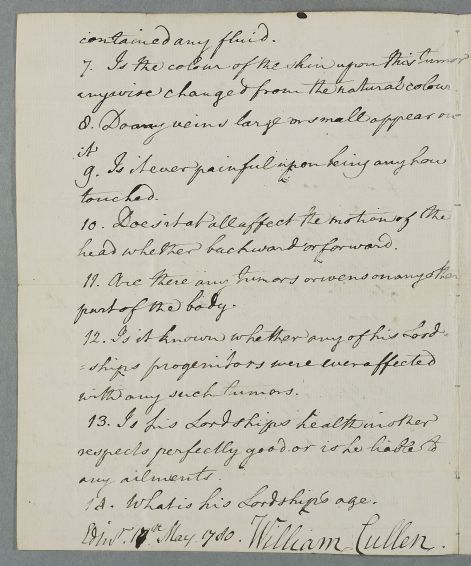 contained any fluid.
7. Is the colour of the skin upon this tumor
anywise changed from the natural colour
8. Do any veins large or small appear on
it
9. Is it ever painful upon being any how
touched.
10. Does it at all affect the motion of the
head whether backward or forward.
11. Are there any tumors or wens on any other
part of the body.
12. Is it known whether any of his Lord-
=ships progenitors were ever affected
with any such tumors.
13. Is his Lordships health in other
respects perfectly good or is he liable to
any ailments.
14. What is his Lordships age.
Edinr. 17th May. 1780. William Cullen.